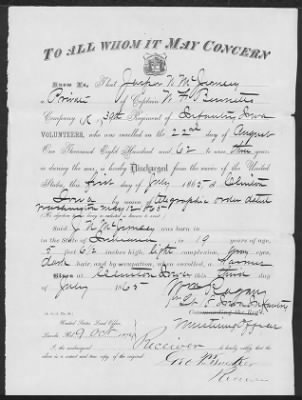 TO ALL WHOM IT MAY CONCERN
Know Ye, That Jasper N. McGrew
Private of Captain W. H. Bennetts
Company K, 39th Regiment of Infantry Iowa
VOLUNTEERS, who was enrolled on the 22nd day of August
One Thousand Eight Hundred and 62 to serve three years
or during the war, is hereby Discharged from the service of the United
States, this first day of July 1865 at Clinton
Iowa by reason of telegraphic order dated
(No objection to his being re-enlisted is known to exist.)
Said J. N. was born in
in the State of Indiana is 19 years of age,
5 feet 6 1/2 inches high, light complexion, gray eyes,
dark hair, and by occupation, when enrolled, a Farmer
Given at Clinton Iowa this third day of
July 1865
Commanding the Reg't
Mustering Officer
United States Land Office,
9 Oct
I, the undersigned Receiver do hereby certify that the
above is a correct and true copy of the original.
Geo. P. Tucker
Receiver